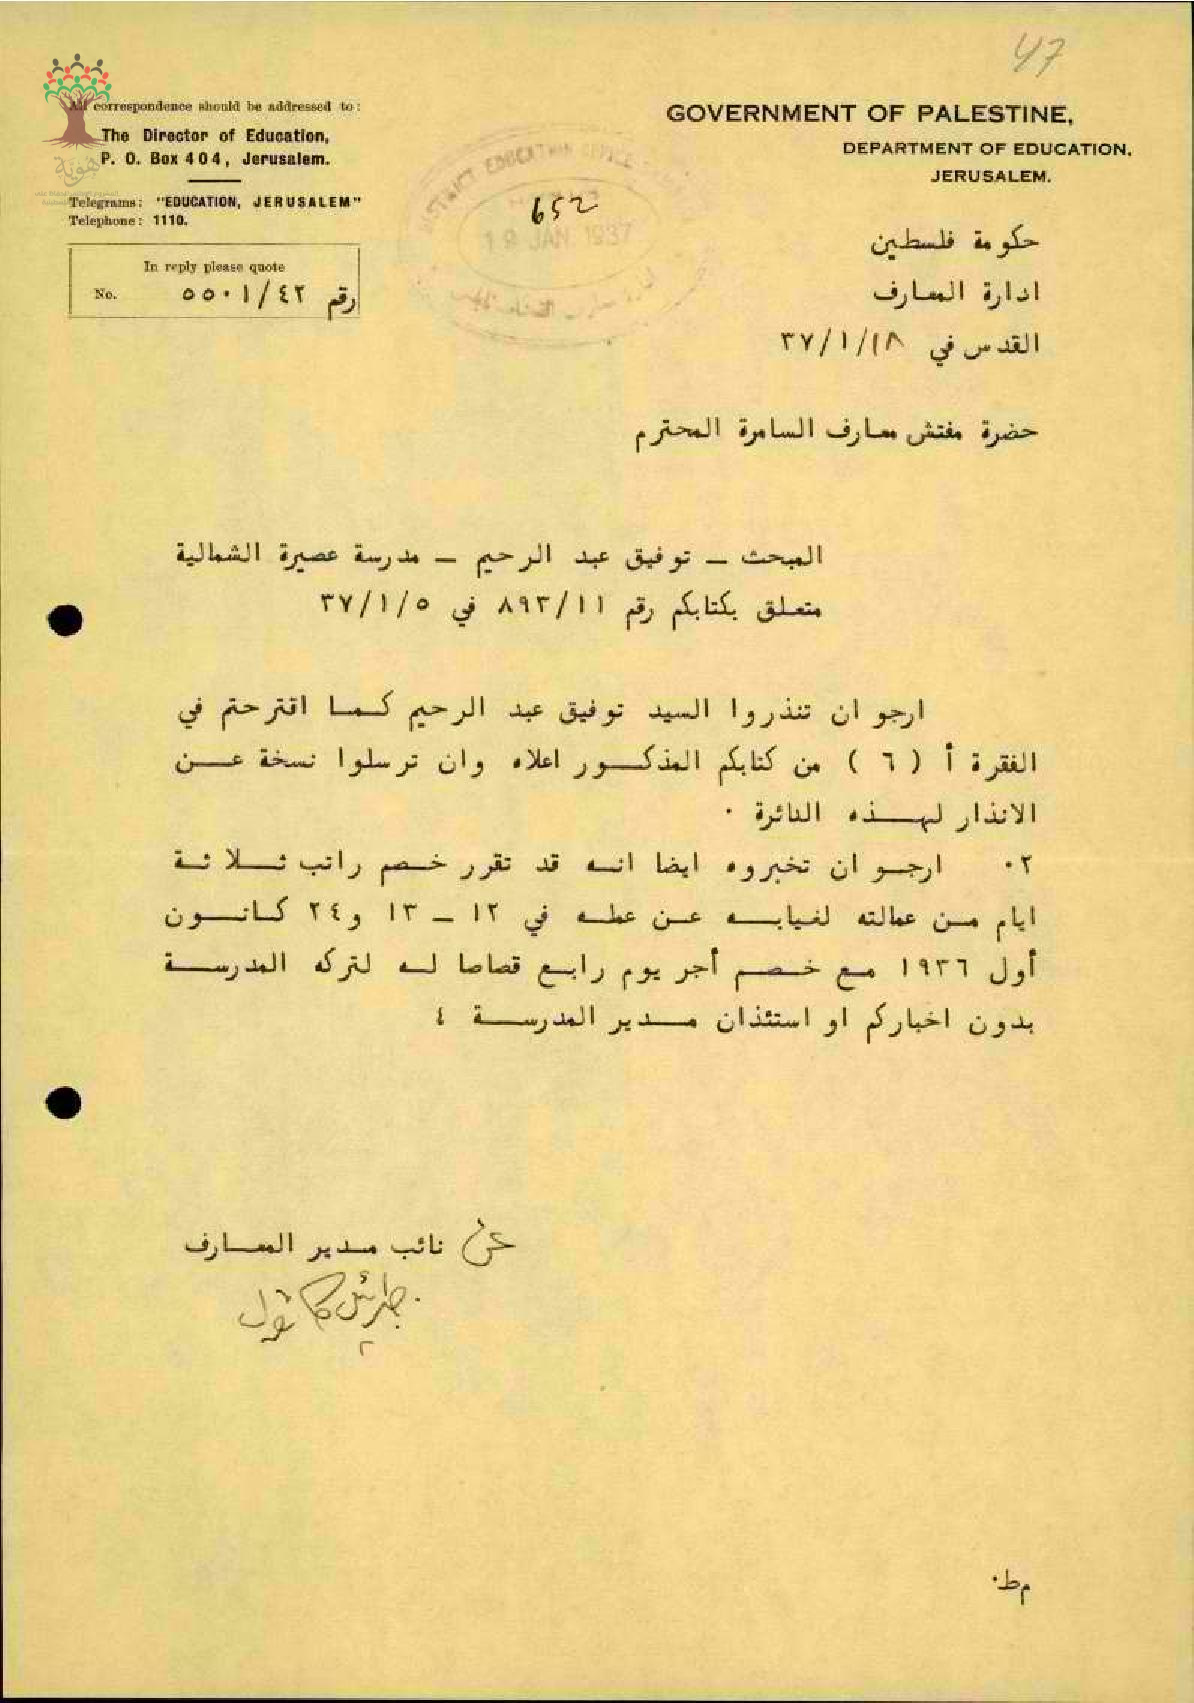 47
All correspondence should be addressed to:
The Director of Education,
P. O. Box 404, Jerusalem.
Telegrams: "EDUCATION, JERUSALEM"
Telephone: 1110.
In reply please quote
No. رقم ٥٥٠١/٤٢
هوية
DISTRICT EDUCATION OFFICE
652
19 JAN. 1937
GOVERNMENT OF PALESTINE,
DEPARTMENT OF EDUCATION,
JERUSALEM.
حكومة فلسطين
ادارة المعارف
القدس في ٣٧/١/١٨
حضرة مفتش معارف السامرة المحترم
المبحث – توفيق عبد الرحيم – مدرسة عصيرة الشمالية
متعلق بكتابكم رقم ٨٩٣/١١ في ٣٧/١/٥
ارجو ان تنذروا السيد توفيق عبد الرحيم كما اقترحتم في
الفقرة أ ( ٦ ) من كتابكم المذكور اعلاه وان ترسلوا نسخة عن
الانذار لهذه الدائرة ٠
٠٢ ارجو ان تخبروه ايضا انه قد تقرر خصم راتب ثلاثة
ايام من عمالته لغيابه عن عمله في ١٢ – ١٣ و٢٤ كانون
أول ١٩٣٦ مع خصم أجر يوم رابع قصاصا له لتركه المدرسة
بدون اخباركم او استئذان مدير المدرسة ٤
عن نائب مدير المعارف
م ط٠